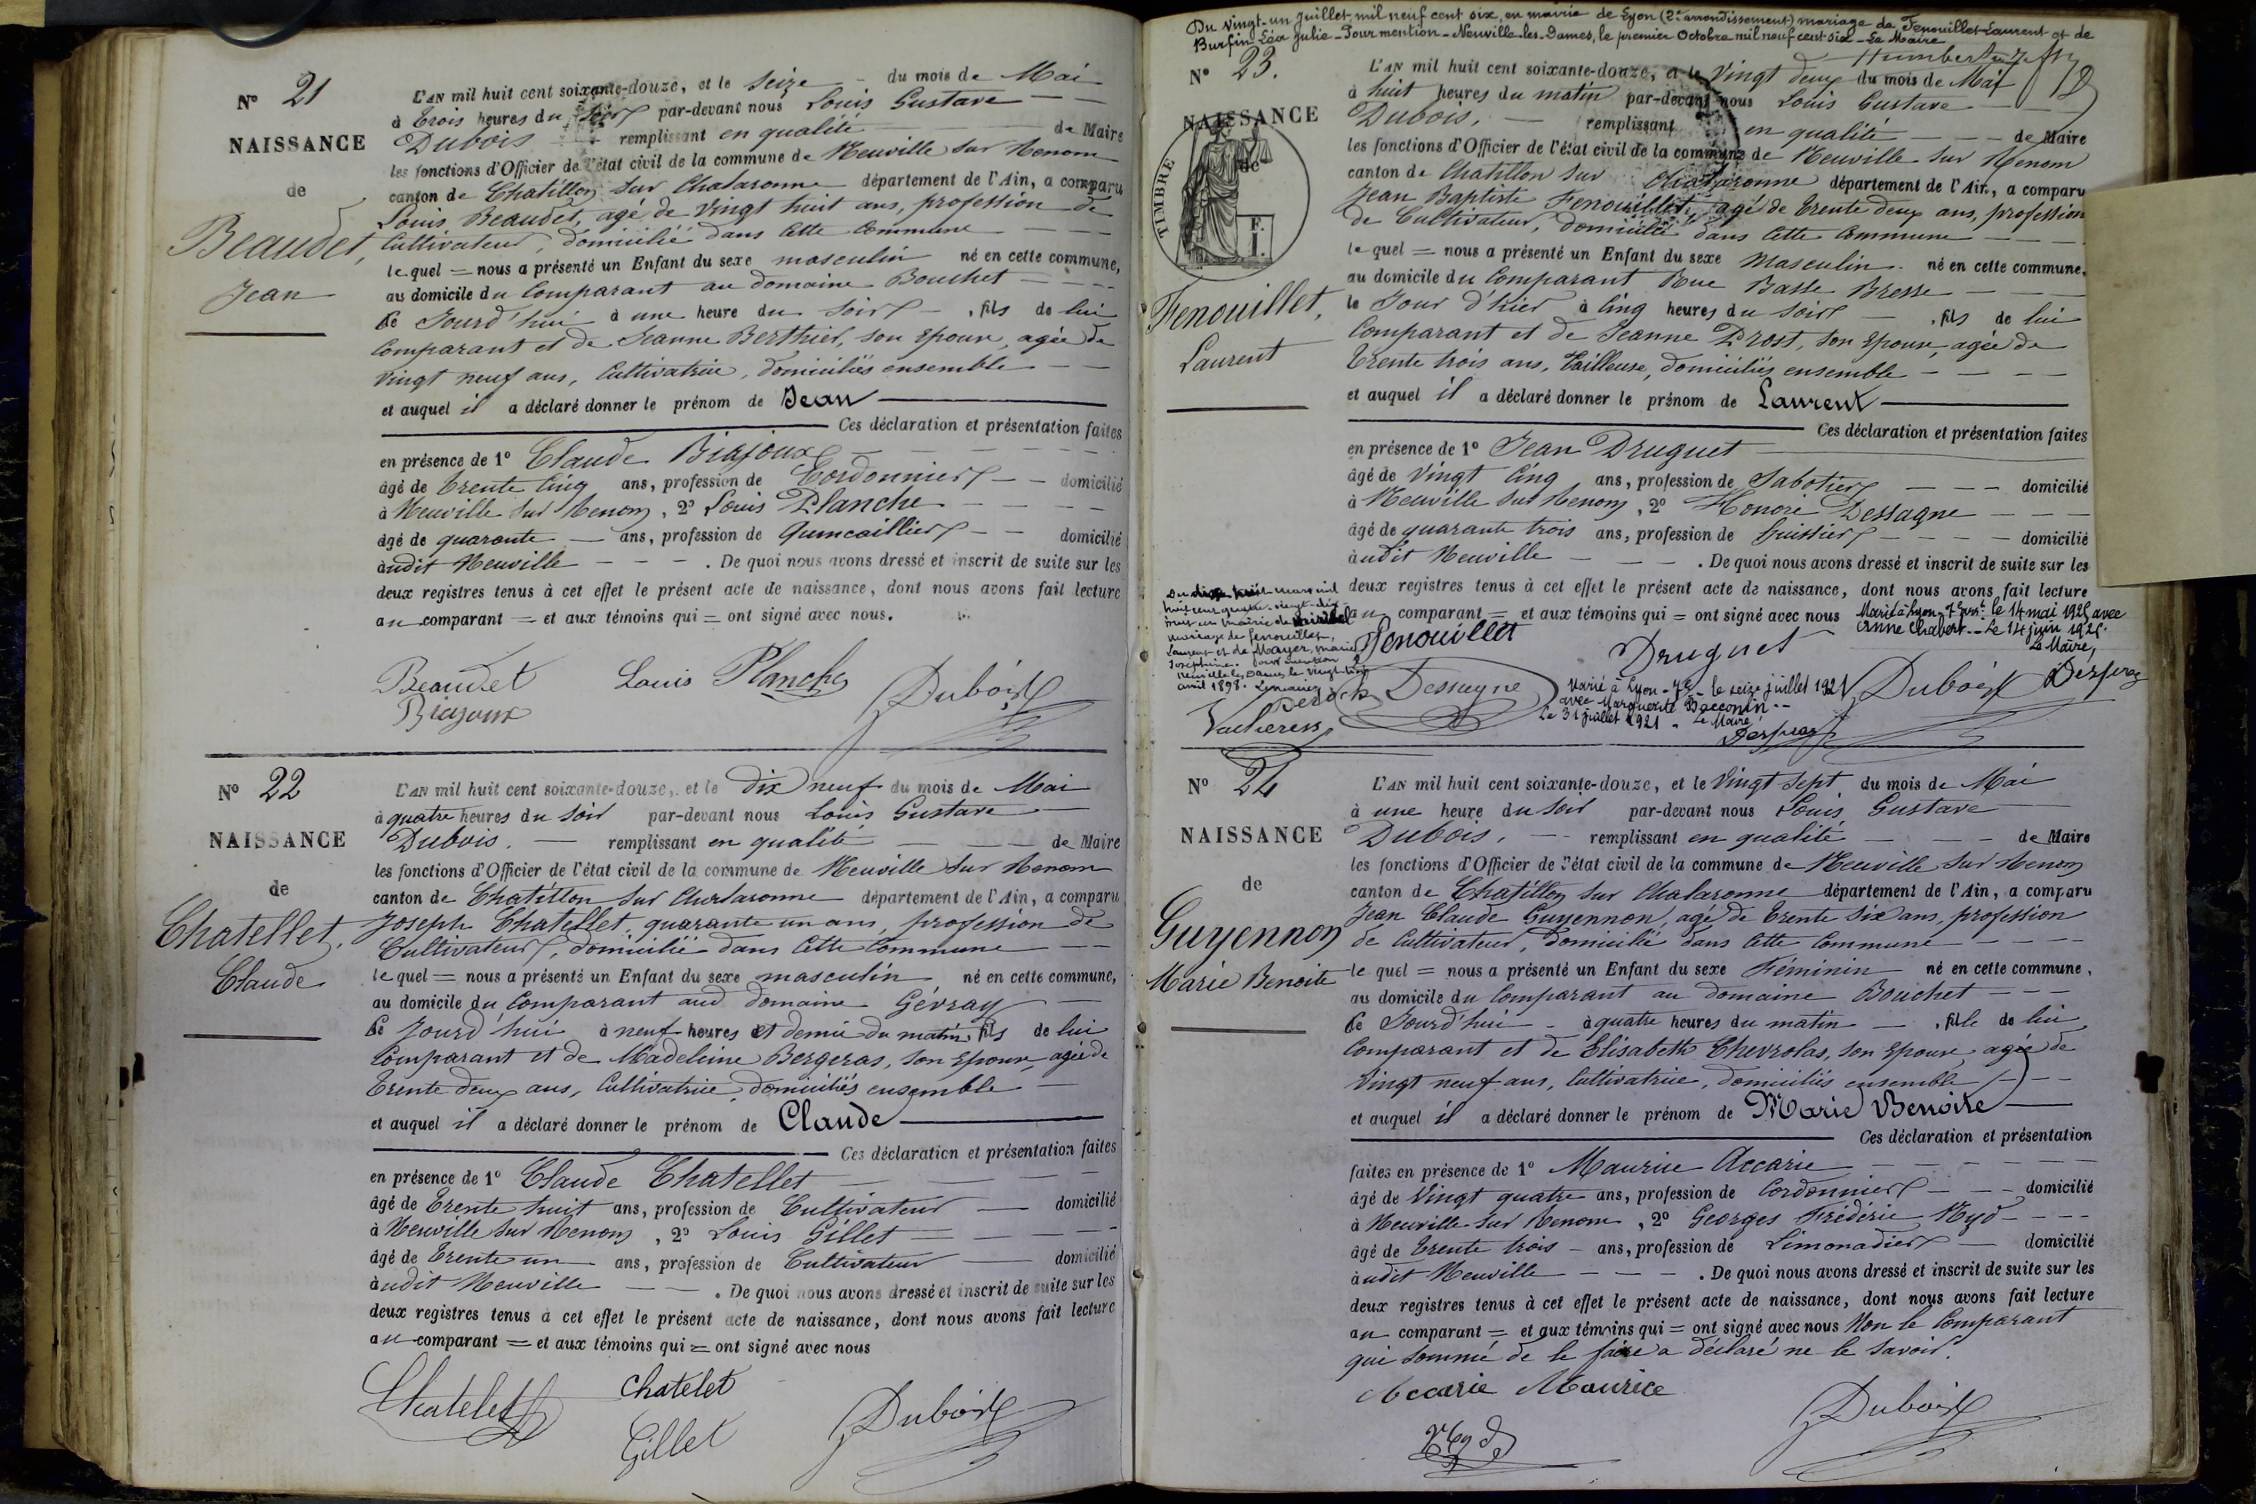 N° 21
NAISSANCE
de
Beaudet,
Jean
L'AN mil huit cent soixante-douze, et le seize du mois de Mai
à trois heures du soir par-devant nous Louis Gustave
Dubois remplissant en qualité de Maire
les fonctions d'Officier de l'état civil de la commune de Neuville sur Renom
canton de Chatillon sur Chalaronne département de l'Ain, a comparu
Louis Beaudet, agé de vingt huit ans, profession de
Cultivateur, domicilié dans cette commune
le quel = nous a présenté un Enfant du sexe masculin né en cette commune,
au domicile du Comparant au domaine Bouchet
Ce Jourd'hui à une heure du soir, fils de lui
Comparant et de Jeanne Berthier, son Epouse, agée de
vingt neuf ans, Cultivatrice, domiciliés ensemble
et auquel il a déclaré donner le prénom de Jean
Ces déclaration et présentation faites
en présence de 1° Claude Biajoux
âgé de trente cinq ans, profession de Cordonnier domicilié
à Neuville sur Renom, 2° Louis Planche
âgé de quarante ans, profession de Quincaillier domicilié
audit Neuville . De quoi nous avons dressé et inscrit de suite sur les
deux registres tenus à cet effet le présent acte de naissance, dont nous avons fait lecture
au comparant = et aux témoins qui = ont signé avec nous.
Beaudet Louis Planche Dubois
Biajoux
N° 22
NAISSANCE
de
Chatellet,
Claude
L'AN mil huit cent soixante-douze, et le dix neuf du mois de Mai
à quatre heures du soir par-devant nous Louis Gustave
Dubois. remplissant en qualité de Maire
les fonctions d'Officier de l'état civil de la commune de Neuville sur Renom
canton de Chatillon sur Chalaronne département de l'Ain, a comparu
Joseph Chatellet, quarante un ans, profession de
Cultivateur, domicilié dans cette Commune
le quel = nous a présenté un Enfant du sexe masculin né en cette commune,
au domicile du Comparant aud domaine Gévray
Ce Jourd'hui à neuf heures et demie du matin, fils de lui
Comparant et de Madeleine Bergeras, son Epouse, agée de
trente deux ans, Cultivatrice, domiciliés ensemble
et auquel il a déclaré donner le prénom de Claude
Ces déclaration et présentation faites
en présence de 1° Claude Chatellet
âgé de trente huit ans, profession de Cultivateur domicilié
à Neuville sur Renom, 2° Louis Gillet
âgé de trente un ans, profession de Cultivateur domicilié
audit Neuville . De quoi nous avons dressé et inscrit de suite sur les
deux registres tenus à cet effet le présent acte de naissance, dont nous avons fait lecture
au comparant = et aux témoins qui = ont signé avec nous
Chatelet Chatelet Dubois
Gillet
Du vingt-un Juillet mil neuf cent six, en mairie de Lyon (2e arrondissement) mariage de Fenouillet Laurent et de
Burfin Léa Julie - Pour mention - Neuville-les-Dames, le premier Octobre mil neuf cent six - Le Maire
N° 23.
NAISSANCE
de
TIMBRE
F.
I.
Fenouillet,
Laurent
L'AN mil huit cent soixante-douze, et le vingt deux du mois de Mai
à huit heures du matin par-devant nous Louis Gustave
Dubois, remplissant en qualité de Maire
les fonctions d'Officier de l'état civil de la commune de Neuville sur Renom
canton de Chatillon sur Chalaronne département de l'Ain, a comparu
Jean Baptiste Fenouillet, agé de trente deux ans, profession
de Cultivateur, domicilié dans cette Commune
le quel = nous a présenté un Enfant du sexe Masculin né en cette commune,
au domicile du Comparant Rue Basse Bresse
le Jour d'hier à cinq heures du soir, fils de lui
Comparant et de Jeanne Prost, son Epouse, agée de
trente trois ans, Tailleuse, domiciliés ensemble
et auquel il a déclaré donner le prénom de Laurent
Ces déclaration et présentation faites
en présence de 1° Jean Druguet
âgé de vingt cinq ans, profession de Sabotier domicilié
à Neuville sur Renom, 2° Honoré Dessagne
âgé de quarante trois ans, profession de huissier domicilié
audit Neuville . De quoi nous avons dressé et inscrit de suite sur les
deux registres tenus à cet effet le présent acte de naissance, dont nous avons fait lecture
au comparant = et aux témoins qui = ont signé avec nous
Marié à Lyon-7e arrt le 14 mai 1925 avec
Anne Chabert. - Le 14 juin 1925.
Le Maire,
mariage de Fenouillet,
Laurent et de Mayer, Marie
Joséphine. Pour mention
Neuville les Dames le vingt cinq
avril 1898.
Fenouillet Druguet
Dessagne Dubois
Marié à Lyon-7e - le seize juillet 1921
avec Marguerite Bacconin --
Le 31 juillet 1921 - Le Maire
N° 24
NAISSANCE
de
Guyennon
Marie Benoite
L'AN mil huit cent soixante-douze, et le vingt sept du mois de Mai
à une heure du soir par-devant nous Louis Gustave
Dubois, remplissant en qualité de Maire
les fonctions d'Officier de l'état civil de la commune de Neuville sur Renom
canton de Chatillon sur Chalaronne département de l'Ain, a comparu
Jean Claude Guyennon, agé de trente six ans, profession
de Cultivateur, domicilié dans cette Commune
le quel = nous a présenté un Enfant du sexe Féminin né en cette commune,
au domicile du Comparant au domaine Bouchet
Ce Jourd'hui à quatre heures du matin, fille de lui
Comparant et de Elisabeth Chevrolas, son Epouse, agée de
vingt neuf ans, Cultivatrice, domiciliés ensemble
et auquel il a déclaré donner le prénom de Marie Benoite
Ces déclaration et présentation
faites en présence de 1° Maurice Accarie
âgé de vingt quatre ans, profession de Cordonnier domicilié
à Neuville sur Renom, 2° Georges Frédéric Nyd
âgé de trente trois ans, profession de Limonadier domicilié
audit Neuville . De quoi nous avons dressé et inscrit de suite sur les
deux registres tenus à cet effet le présent acte de naissance, dont nous avons fait lecture
au comparant = et aux témoins qui = ont signé avec nous Non le Comparant
qui sommé de le faire a déclaré ne le savoir.
Accarie Maurice Dubois